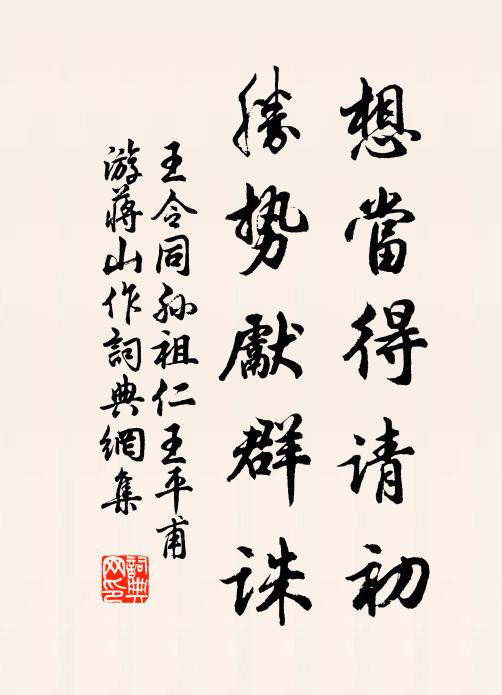 想當得请初
勝势獻群誅
王令同孙祖仁王平甫
游蒋山作詞典網集
詞典
网印